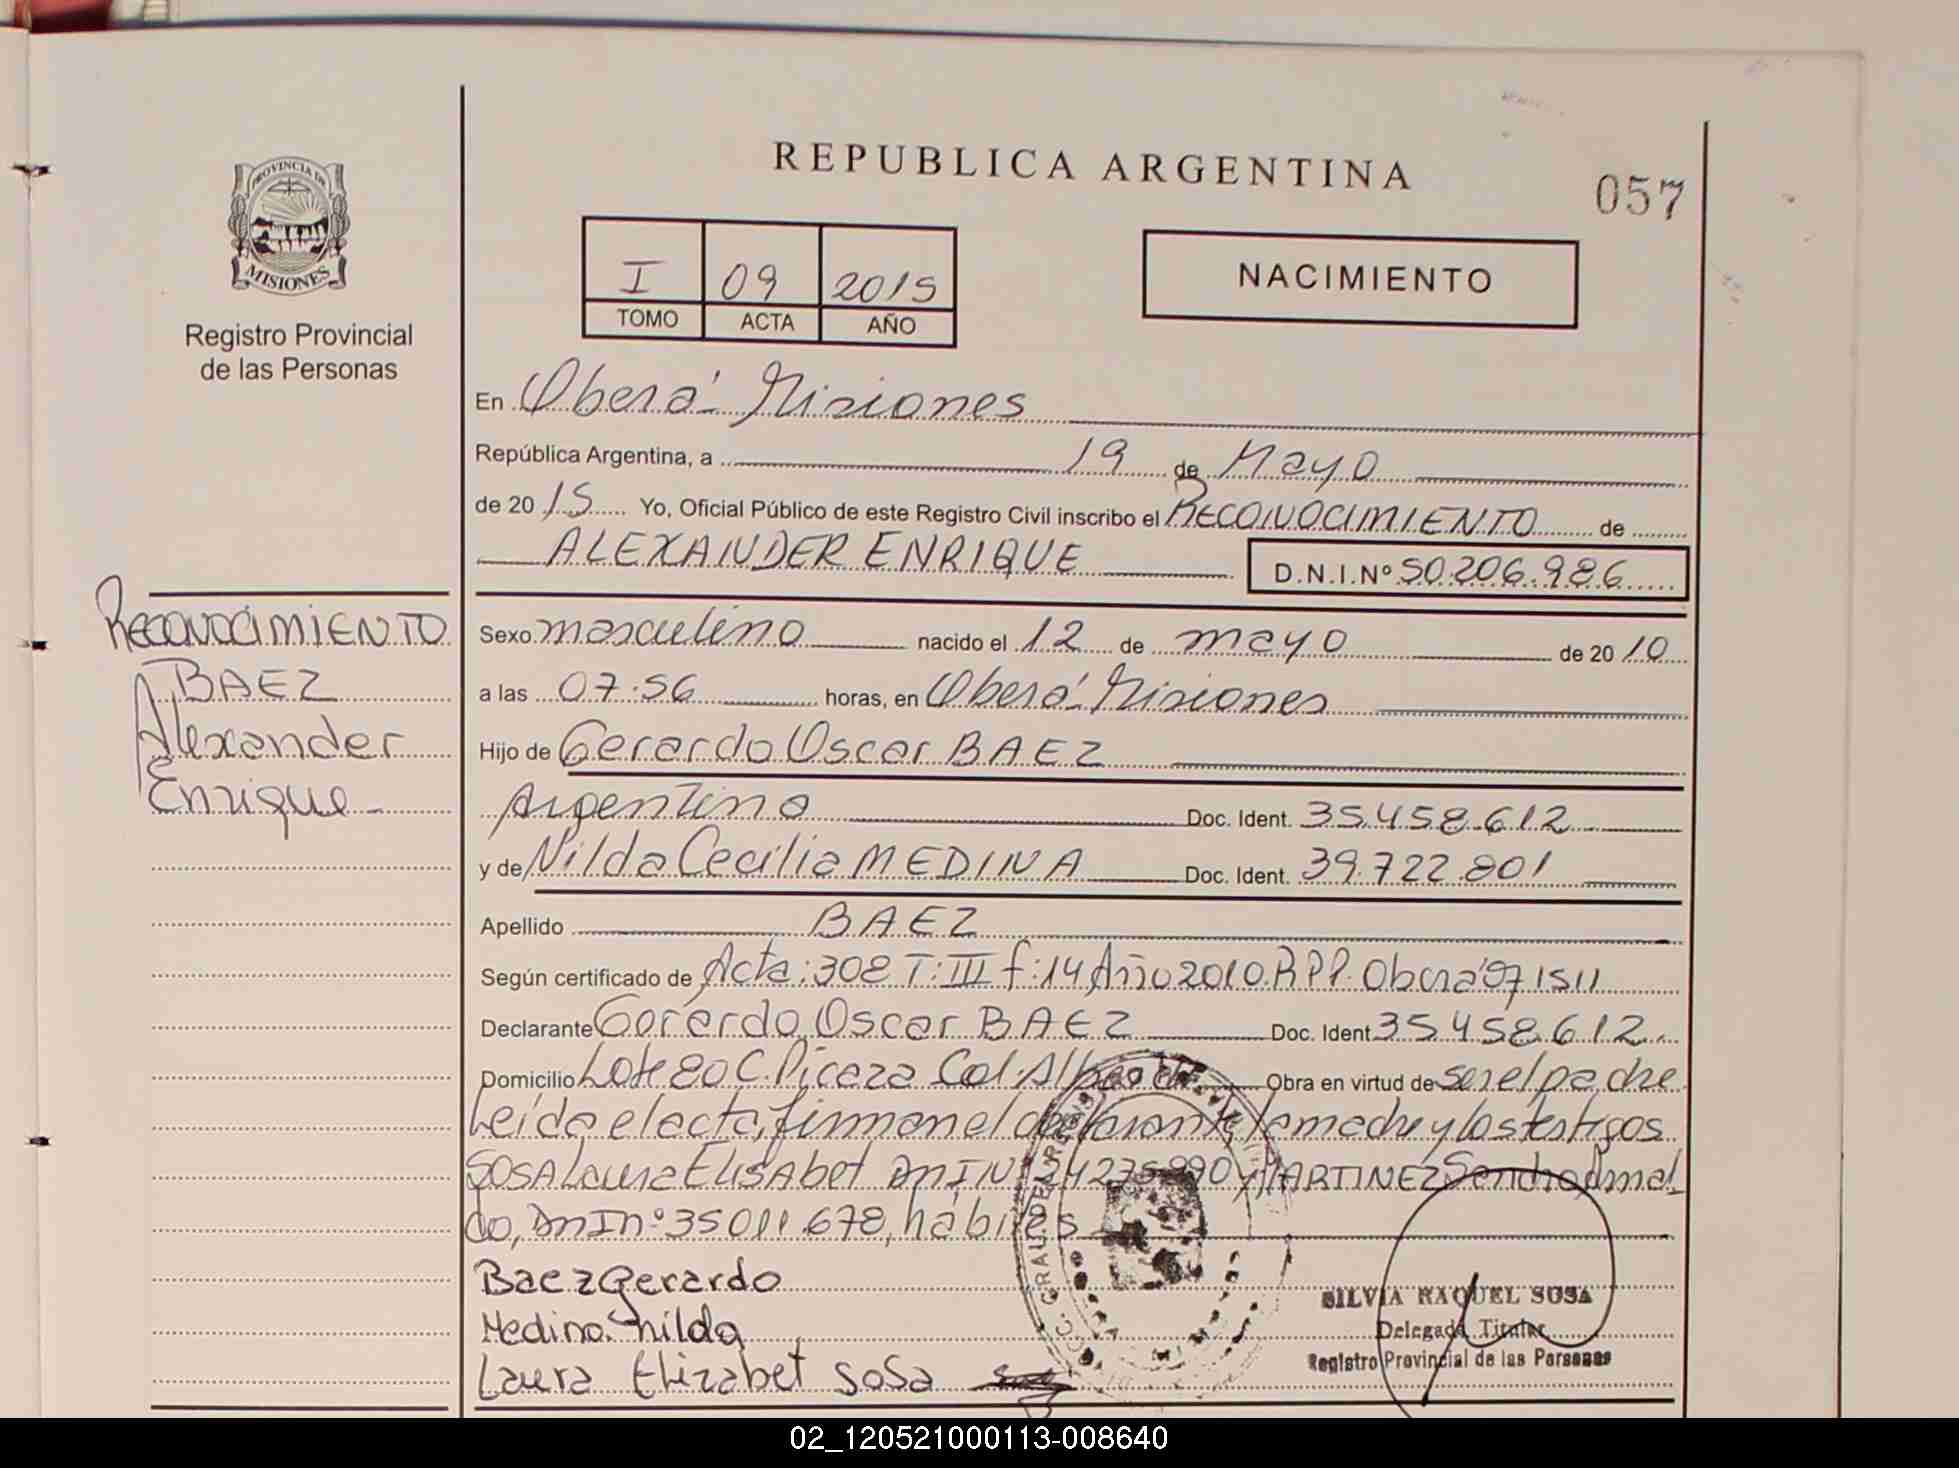 REPUBLICA ARGENTINA
057
PROVINCIA DE
MISIONES
Registro Provincial
de las Personas
I 09 2015
TOMO ACTA AÑO
NACIMIENTO
En Oberá - Misiones
República Argentina, a 19 de Mayo
de 20 15 Yo, Oficial Público de este Registro Civil inscribo el RECONOCIMIENTO de
ALEXANDER ENRIQUE D.N.I.Nº 50.206.986
RECONOCIMIENTO
BAEZ
Alexander
Enrique -
Sexo masculino nacido el 12 de mayo de 20 10
a las 07:56 horas, en Oberá - Misiones
Hijo de Gerardo Oscar BAEZ
Argentino Doc. Ident. 35.458.612
y de Nilda Cecilia MEDINA Doc. Ident. 39.722.801
Apellido BAEZ
Según certificado de Acta: 308 T: III f: 14 Año 2010. RPP. Oberá 071511
Declarante Gerardo Oscar BAEZ Doc. Ident 35.458.612
Domicilio Lote 80 C. Picaza Col. Alberdi Obra en virtud de ser el padre
Leída el acta, firman el declarante, la madre y los testigos
SOSA Laura ELISAbet DNI Nº 24235990 y MARTINEZ Sandro Arnal-
do, DNI nº 35011.678, hábiles
Baez Gerardo
Medina. nilda
Laura Elizabet SoSa
SILVIA RAQUEL SOSA
Delegada Titular
Registro Provincial de las Personas
02_120521000113-008640